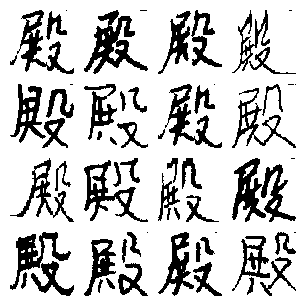 殿殿殿殿
殿殿殿殿
殿殿殿殿
殿殿殿殿